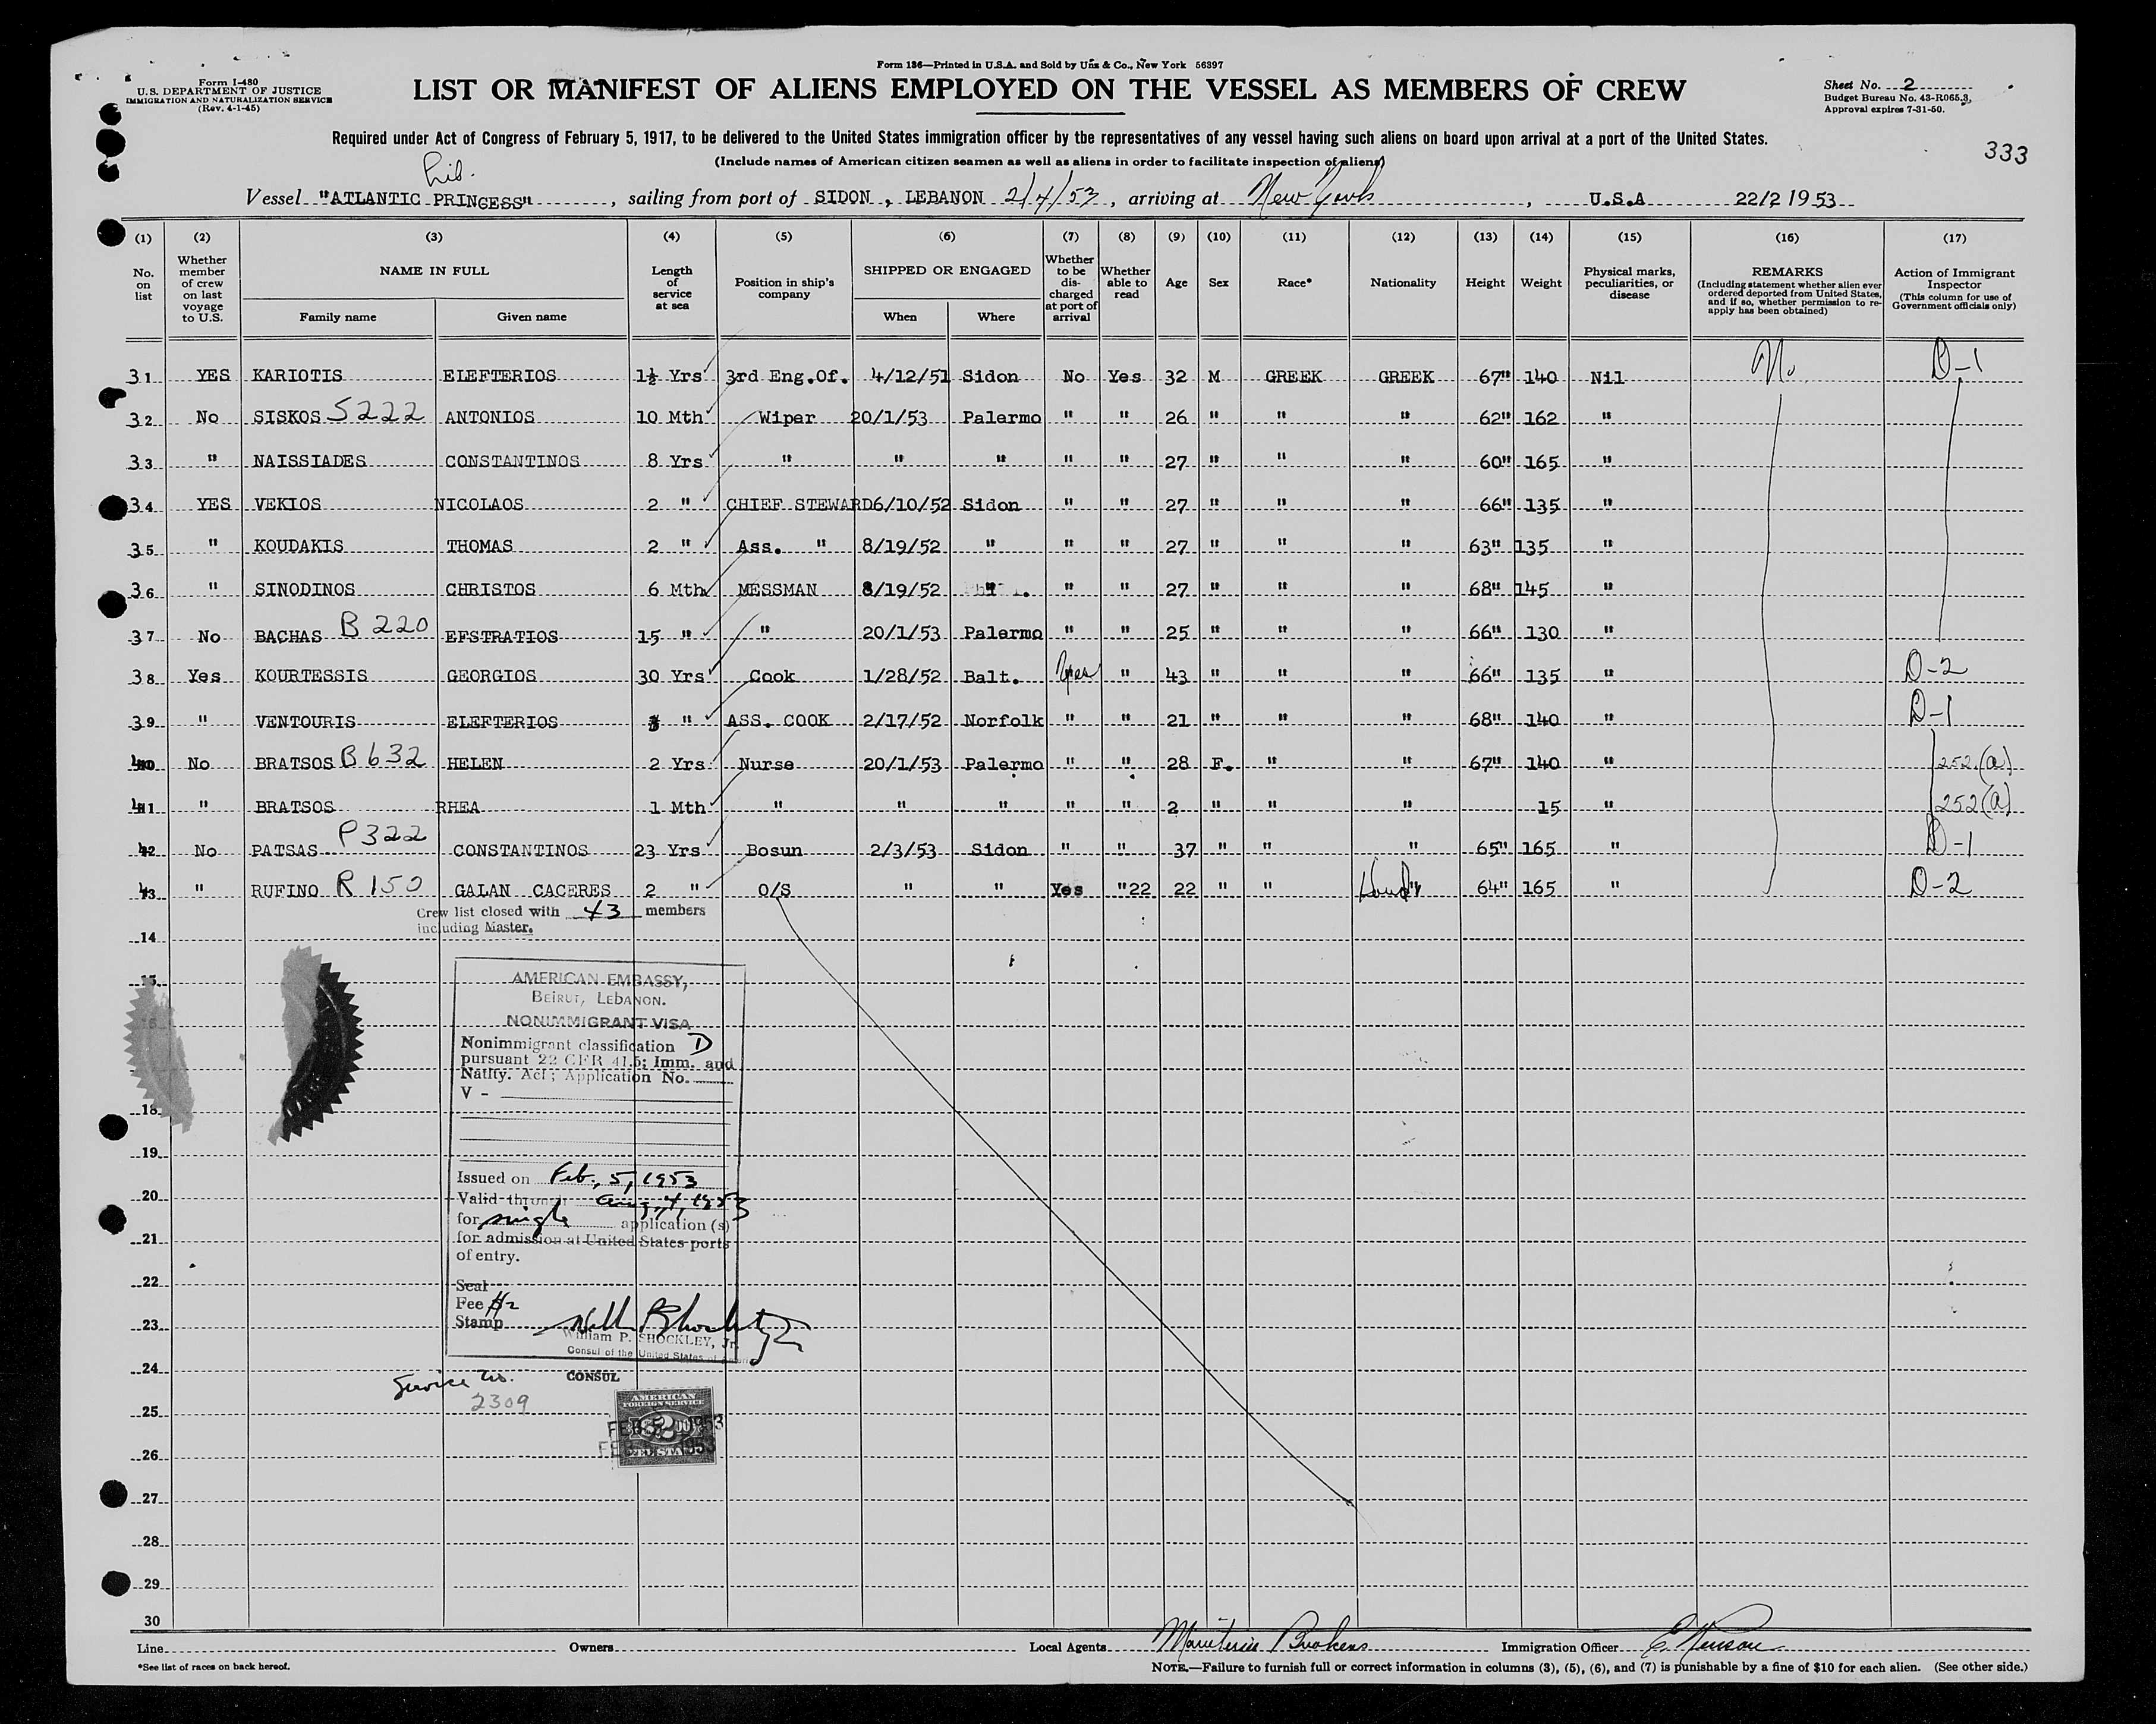 Form 136—Printed in U.S.A. and Sold by Unz & Co., New York 56397
Form I-480
U.S. DEPARTMENT OF JUSTICE
IMMIGRATION AND NATURALIZATION SERVICE
(Rev. 4-1-45)
LIST OR MANIFEST OF ALIENS EMPLOYED ON THE VESSEL AS MEMBERS OF CREW
Sheet No. 2
Budget Bureau No. 43-R065.3.
Approval expires 7-31-50.
Required under Act of Congress of February 5, 1917, to be delivered to the United States immigration officer by the representatives of any vessel having such aliens on board upon arrival at a port of the United States.
333
(Include names of American citizen seamen as well as aliens in order to facilitate inspection of aliens)
Lib.
Vessel "ATLANTIC PRINCESS", sailing from port of SIDON, LEBANON 2/4/53, arriving at New York, U.S.A 22/2 1953
(1) (2) (3) (4) (5) (6) (7) (8) (9) (10) (11) (12) (13) (14) (15) (16) (17)
No. on list
Whether member of crew on last voyage to U.S.
NAME IN FULL
Family name Given name
Length of service at sea
Position in ship's company
SHIPPED OR ENGAGED
When Where
Whether to be discharged at port of arrival
Whether able to read
Age Sex Race* Nationality Height Weight
Physical marks, peculiarities, or disease
REMARKS
(Including statement whether alien ever ordered deported from United States, and if so, whether permission to re-apply has been obtained)
Action of Immigrant Inspector
(This column for use of Government officials only)
31 YES KARIOTIS ELEFTERIOS 1½ Yrs 3rd Eng.Of. 4/12/51 Sidon No Yes 32 M GREEK GREEK 67" 140 Nil No D-1
32 No SISKOS S222 ANTONIOS 10 Mth Wiper 20/1/53 Palermo " " 26 " " " 62" 162 "
33 " NAISSIADES CONSTANTINOS 8 Yrs " " " " " 27 " " " 60" 165 "
34 YES VEKIOS NICOLAOS 2 " CHIEF STEWARD 6/10/52 Sidon " " 27 " " " 66" 135 "
35 " KOUDAKIS THOMAS 2 " Ass. " 8/19/52 " " " 27 " " " 63" 135 "
36 " SINODINOS CHRISTOS 6 Mth MESSMAN 8/19/52 " " " 27 " " " 68" 145 "
37 No BACHAS B 220 EFSTRATIOS 15 " " 20/1/53 Palermo " " 25 " " " 66" 130 "
38 Yes KOURTESSIS GEORGIOS 30 Yrs Cook 1/28/52 Balt. Yes " 43 " " " 66" 135 " D-2
39 " VENTOURIS ELEFTERIOS " ASS. COOK 2/17/52 Norfolk " " 21 " " " 68" 140 " D-1
40 No BRATSOS B 632 HELEN 2 Yrs Nurse 20/1/53 Palermo " " 28 F. " " 67" 140 " 252.(a)
41 " BRATSOS RHEA 1 Mth " " " " " 2 " " " 15 " 252(a)
42 No PATSAS P322 CONSTANTINOS 23 Yrs Bosun 2/3/53 Sidon " " 37 " " " 65" 165 " D-1
43 " RUFINO R 150 GALAN CACERES 2 " O/S " " Yes "22 22 " " Hond" 64" 165 " D-2
Crew list closed with 43 members
including Master.
14
15
16
AMERICAN EMBASSY,
BEIRUT, LEBANON.
NONIMMIGRANT VISA
Nonimmigrant classification D
pursuant 22 CFR 41.5; Imm. and
Natlty. Act; Application No.
V -
18
19
Issued on Feb., 5, 1953
20
Valid through Aug., 4, 1953
for single application (s)
21
for admission at United States ports
of entry.
22
Seal
Fee $2
Stamp
23
William P. SHOCKLEY, Jr.
Consul of the United States of America
24
Service No. CONSUL
2309
AMERICAN
FOREIGN SERVICE
FEB 5 1953
FEE STAMP
25
26
27
28
29
30
Line Owners Local Agents Maritime Brokers Immigration Officer
*See list of races on back hereof.
NOTE.—Failure to furnish full or correct information in columns (3), (5), (6), and (7) is punishable by a fine of $10 for each alien. (See other side.)